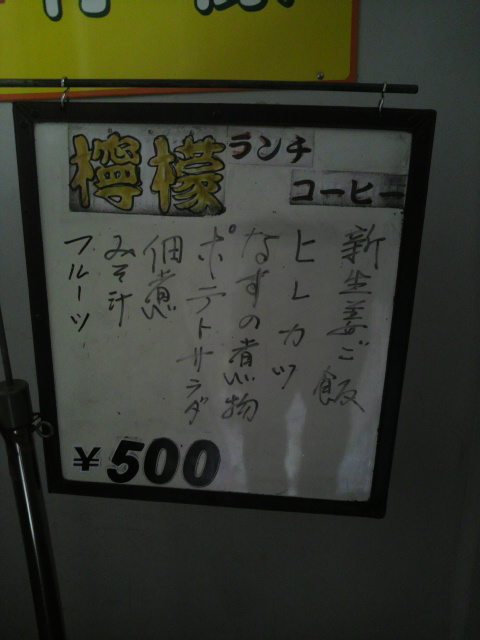 檸檬
ランチ
コーヒー
新生姜ご飯
ヒレカツ
なすの煮物
ポテトサラダ
佃煮
みそ汁
フルーツ
¥500